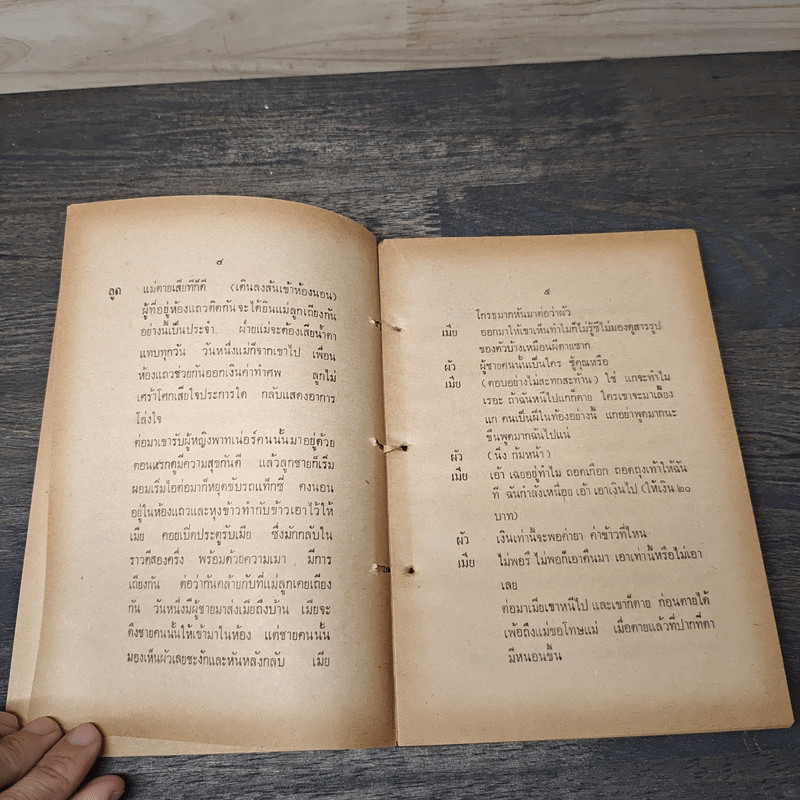 ๔
ลูก แม่ตายเสียทีก็ดี (เดินลงส้นเข้าห้องนอน)
ผู้ที่อยู่ห้องแถวติดกันจะได้ยินแม่ลูกเถียงกัน
อย่างนี้เป็นประจำ ฝ่ายแม่จะต้องเสียน้ำตา
แทบทุกวัน วันหนึ่งแม่ก็จากเขาไป เพื่อน
ห้องแถวช่วยกันออกเงินค่าทำศพ ลูกไม่
เศร้าโศกเสียใจประการใด กลับแสดงอาการ
โล่งใจ
ต่อมาเขารับผู้หญิงพาทเน่อร์คนนั้นมาอยู่ด้วย
ตอนแรกดูมีความสุขกันดี แล้วลูกชายก็เริ่ม
ผอมเริ่มไอต่อมาก็หยุดขับรถแท็กซี่ คงนอน
อยู่ในห้องแถวและหุงข้าวทำกับข้าวเอาไว้ให้
เมีย คอยเปิดประตูรับเมีย ซึ่งมักกลับใน
ราวตีสองครึ่ง พร้อมด้วยความเมา มีการ
เถียงกัน ต่อว่ากันคล้ายกับที่แม่ลูกเคยเถียง
กัน วันหนึ่งมีผู้ชายมาส่งเมียถึงบ้าน เมียจะ
ดึงชายคนนั้นให้เข้ามาในห้อง แต่ชายคนนั้น
มองเห็นผัวเลยชะงักและหันหลังกลับ เมีย
๕
โกรธมากหันมาต่อว่าผัว
เมีย ออกมาให้เขาเห็นทำไมก็ไม่รู้ซีไม่มองดูสารรูป
ของตัวบ้างเหมือนผีตายซาก
ผัว ผู้ชายคนนั้นเป็นใคร ชู้คุณหรือ
เมีย (ตอบอย่างไม่สะทกสะท้าน) ใช่ แกจะทำไม
เรอะ ถ้าฉันหนีไปแกก็ตาย ใครเขาจะมาเลี้ยง
แก คนเป็นฝีในท้องอย่างนี้ แกอย่าพูดมากนะ
ขืนพูดมากฉันไปแน่
ผัว (นิ่ง ก้มหน้า)
เมีย เอ้า เฉยอยู่ทำไม ถอดเกือก ถอดถุงเท้าให้ฉัน
ที ฉันกำลังเหนื่อย เอ้า เอาเงินไป (ให้เงิน ๒๐
บาท)
ผัว เงินเท่านี้จะพอค่ายา ค่าข้าวที่ไหน
เมีย ไม่พอรึ ไม่พอก็เอาคืนมา เอาเท่านี้หรือไม่เอา
เลย
ต่อมาเมียเขาหนีไป และเขาก็ตาย ก่อนตายได้
เพ้อถึงแม่ขอโทษแม่ เมื่อตายแล้วที่ปากที่ตา
มีหนอนขึ้น